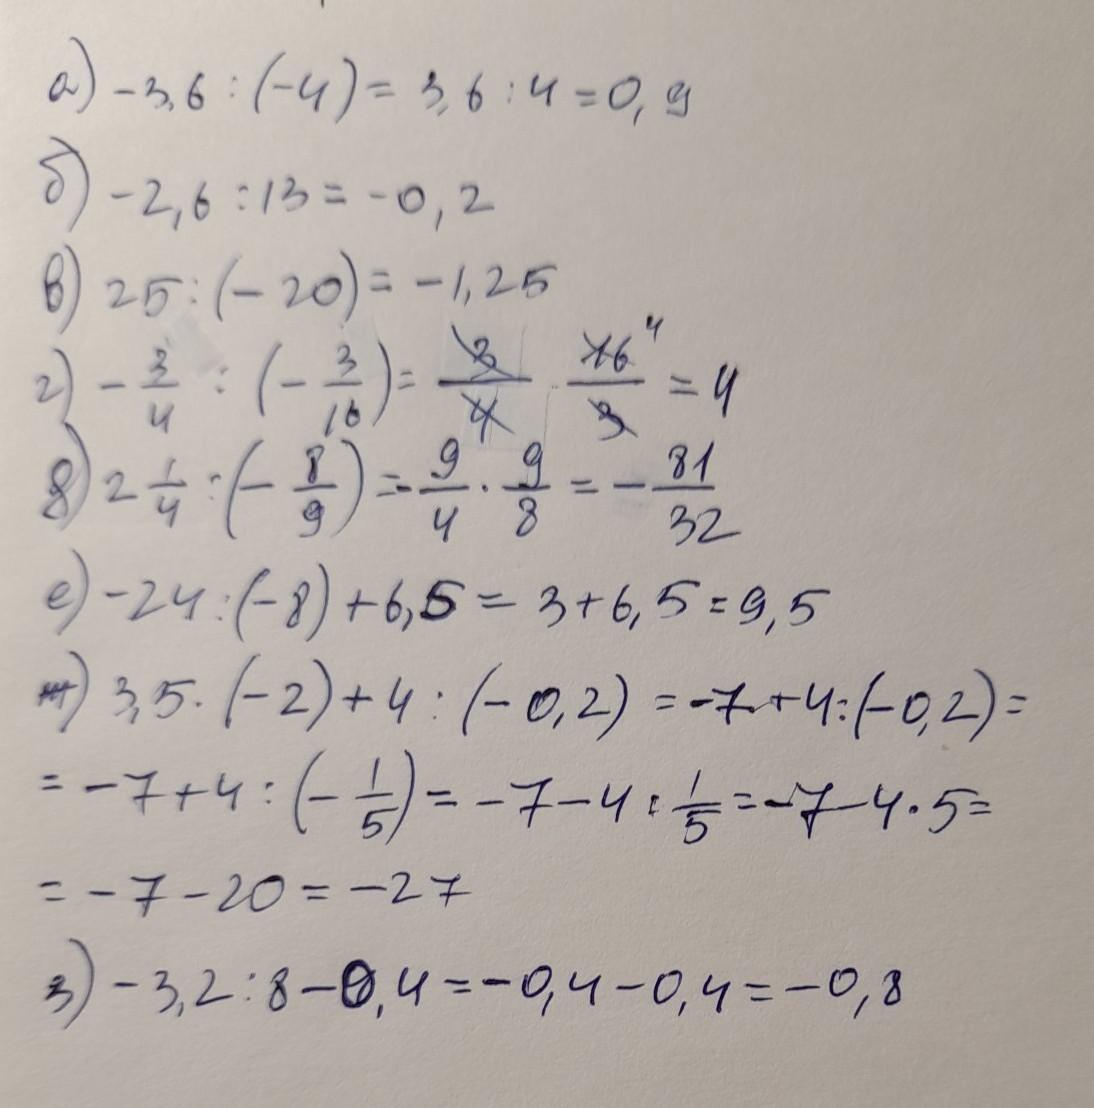 а) -3,6 : (-4) = 3,6 : 4 = 0,9
б) -2,6 : 13 = -0,2
в) 25 : (-20) = -1,25
г) - 3/4 : (- 3/16) = 3/4 · 16/3 4 = 4
д) 2 1/4 : (- 8/9) = - 9/4 · 9/8 = - 81/32
е) -24 : (-8) + 6,5 = 3 + 6,5 = 9,5
ж) 3,5 · (-2) + 4 : (-0,2) = -7 + 4 : (-0,2) =
= -7 + 4 : (- 1/5) = -7 - 4 : 1/5 = -7 - 4 · 5 =
= -7 - 20 = -27
з) -3,2 : 8 - 0,4 = -0,4 - 0,4 = -0,8